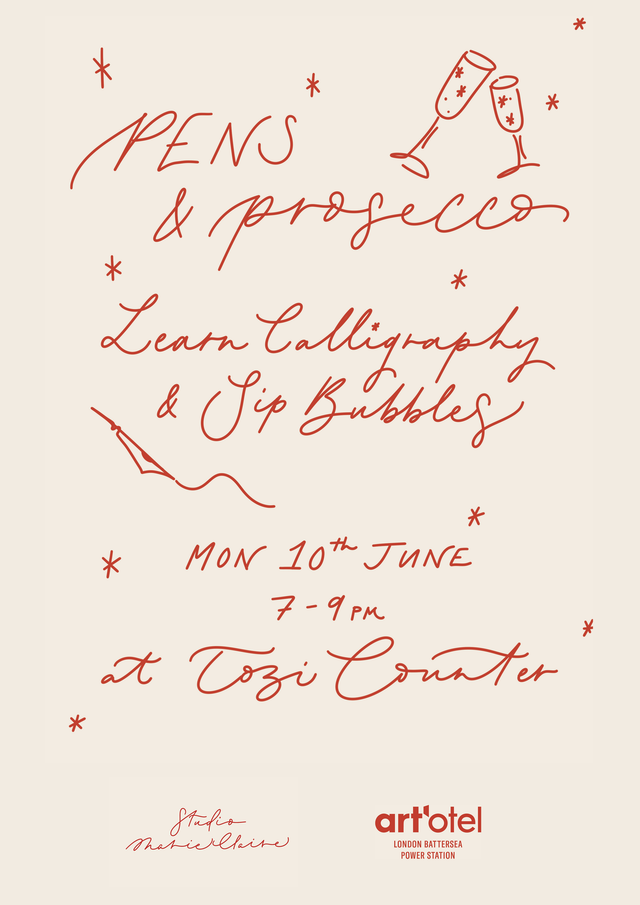 PENS
& prosecco
Learn Calligraphy
& Sip Bubbles
MON 10th JUNE
7-9PM
at Tozi Counter
Studio
Marie Claire
art'otel
LONDON BATTERSEA
POWER STATION